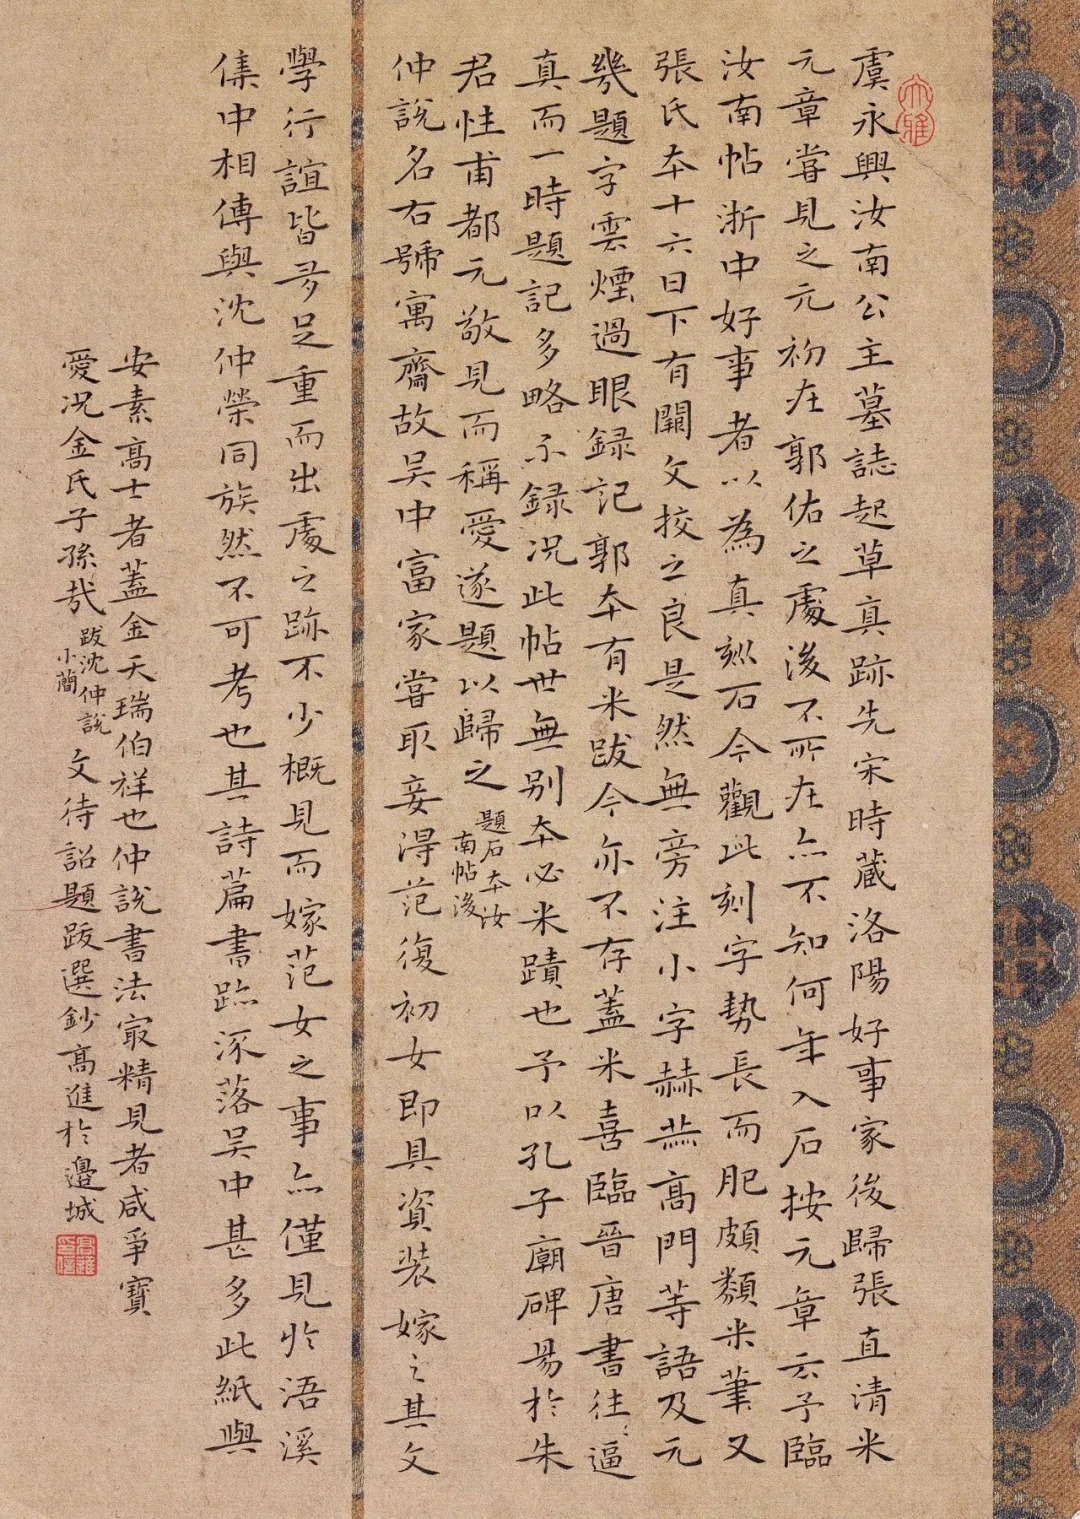 大雅
虞永興汝南公主墓誌起草真跡先宋時蔵洛陽好事家後歸張直清米
元章嘗見之元初在郭佑之處後不所在亦不知何年入石按元章云予臨
汝南帖浙中好事者以為真刻石今觀此刻字勢長而肥頗類米筆又
張氏本十六日下有闕文挍之良是然無旁注小字赫燕高門等語及元
幾題字雲煙過眼録記郭本有米跋今亦不存蓋米喜臨晉唐書往〻逼
真而一時題記多略不録况此帖世無别本必米蹟也予以孔子廟碑易於朱
君性甫都元敬見而稱愛遂題以歸之
題石本汝
南帖後
仲說名右號寓齋故吴中富家嘗取妾得范復初女即具資装嫁之其文
學行誼皆多足重而出處之跡不少概見而嫁范女之事亦僅見於浯溪
集中相傳與沈仲榮同族然不可考也其詩篇書跡流落吴中甚多此紙與
安素高士者蓋金天瑞伯祥也仲說書法寂精見者咸爭寶
愛况金氏子孫哉
跋沈仲說
小簡
文待詔題跋選鈔高進於邊城